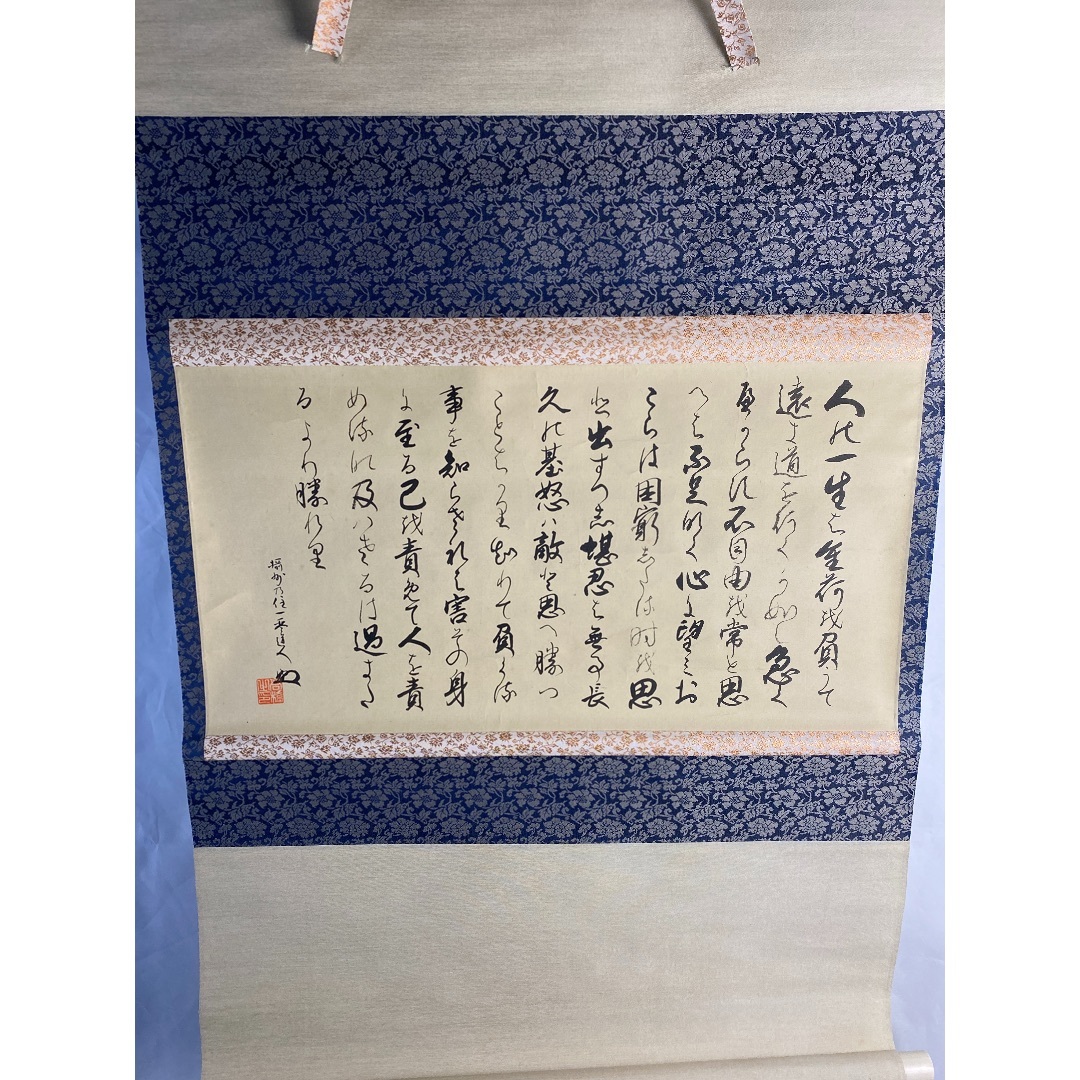 人の一生は重荷を負うて
遠き道を行くが如し急ぐ
べからず不自由を常と思
へば不足なく心に望みお
こらば困窮したる時を思
ひ出すべし堪忍は無事長
久の基怒は敵と思へ勝つ
ことばかり知りて負くる
事を知らざれば害その身
に至る己を責めて人を責
めるな及ばざるは過ぎた
るより勝れり
摂州乃住一平道人